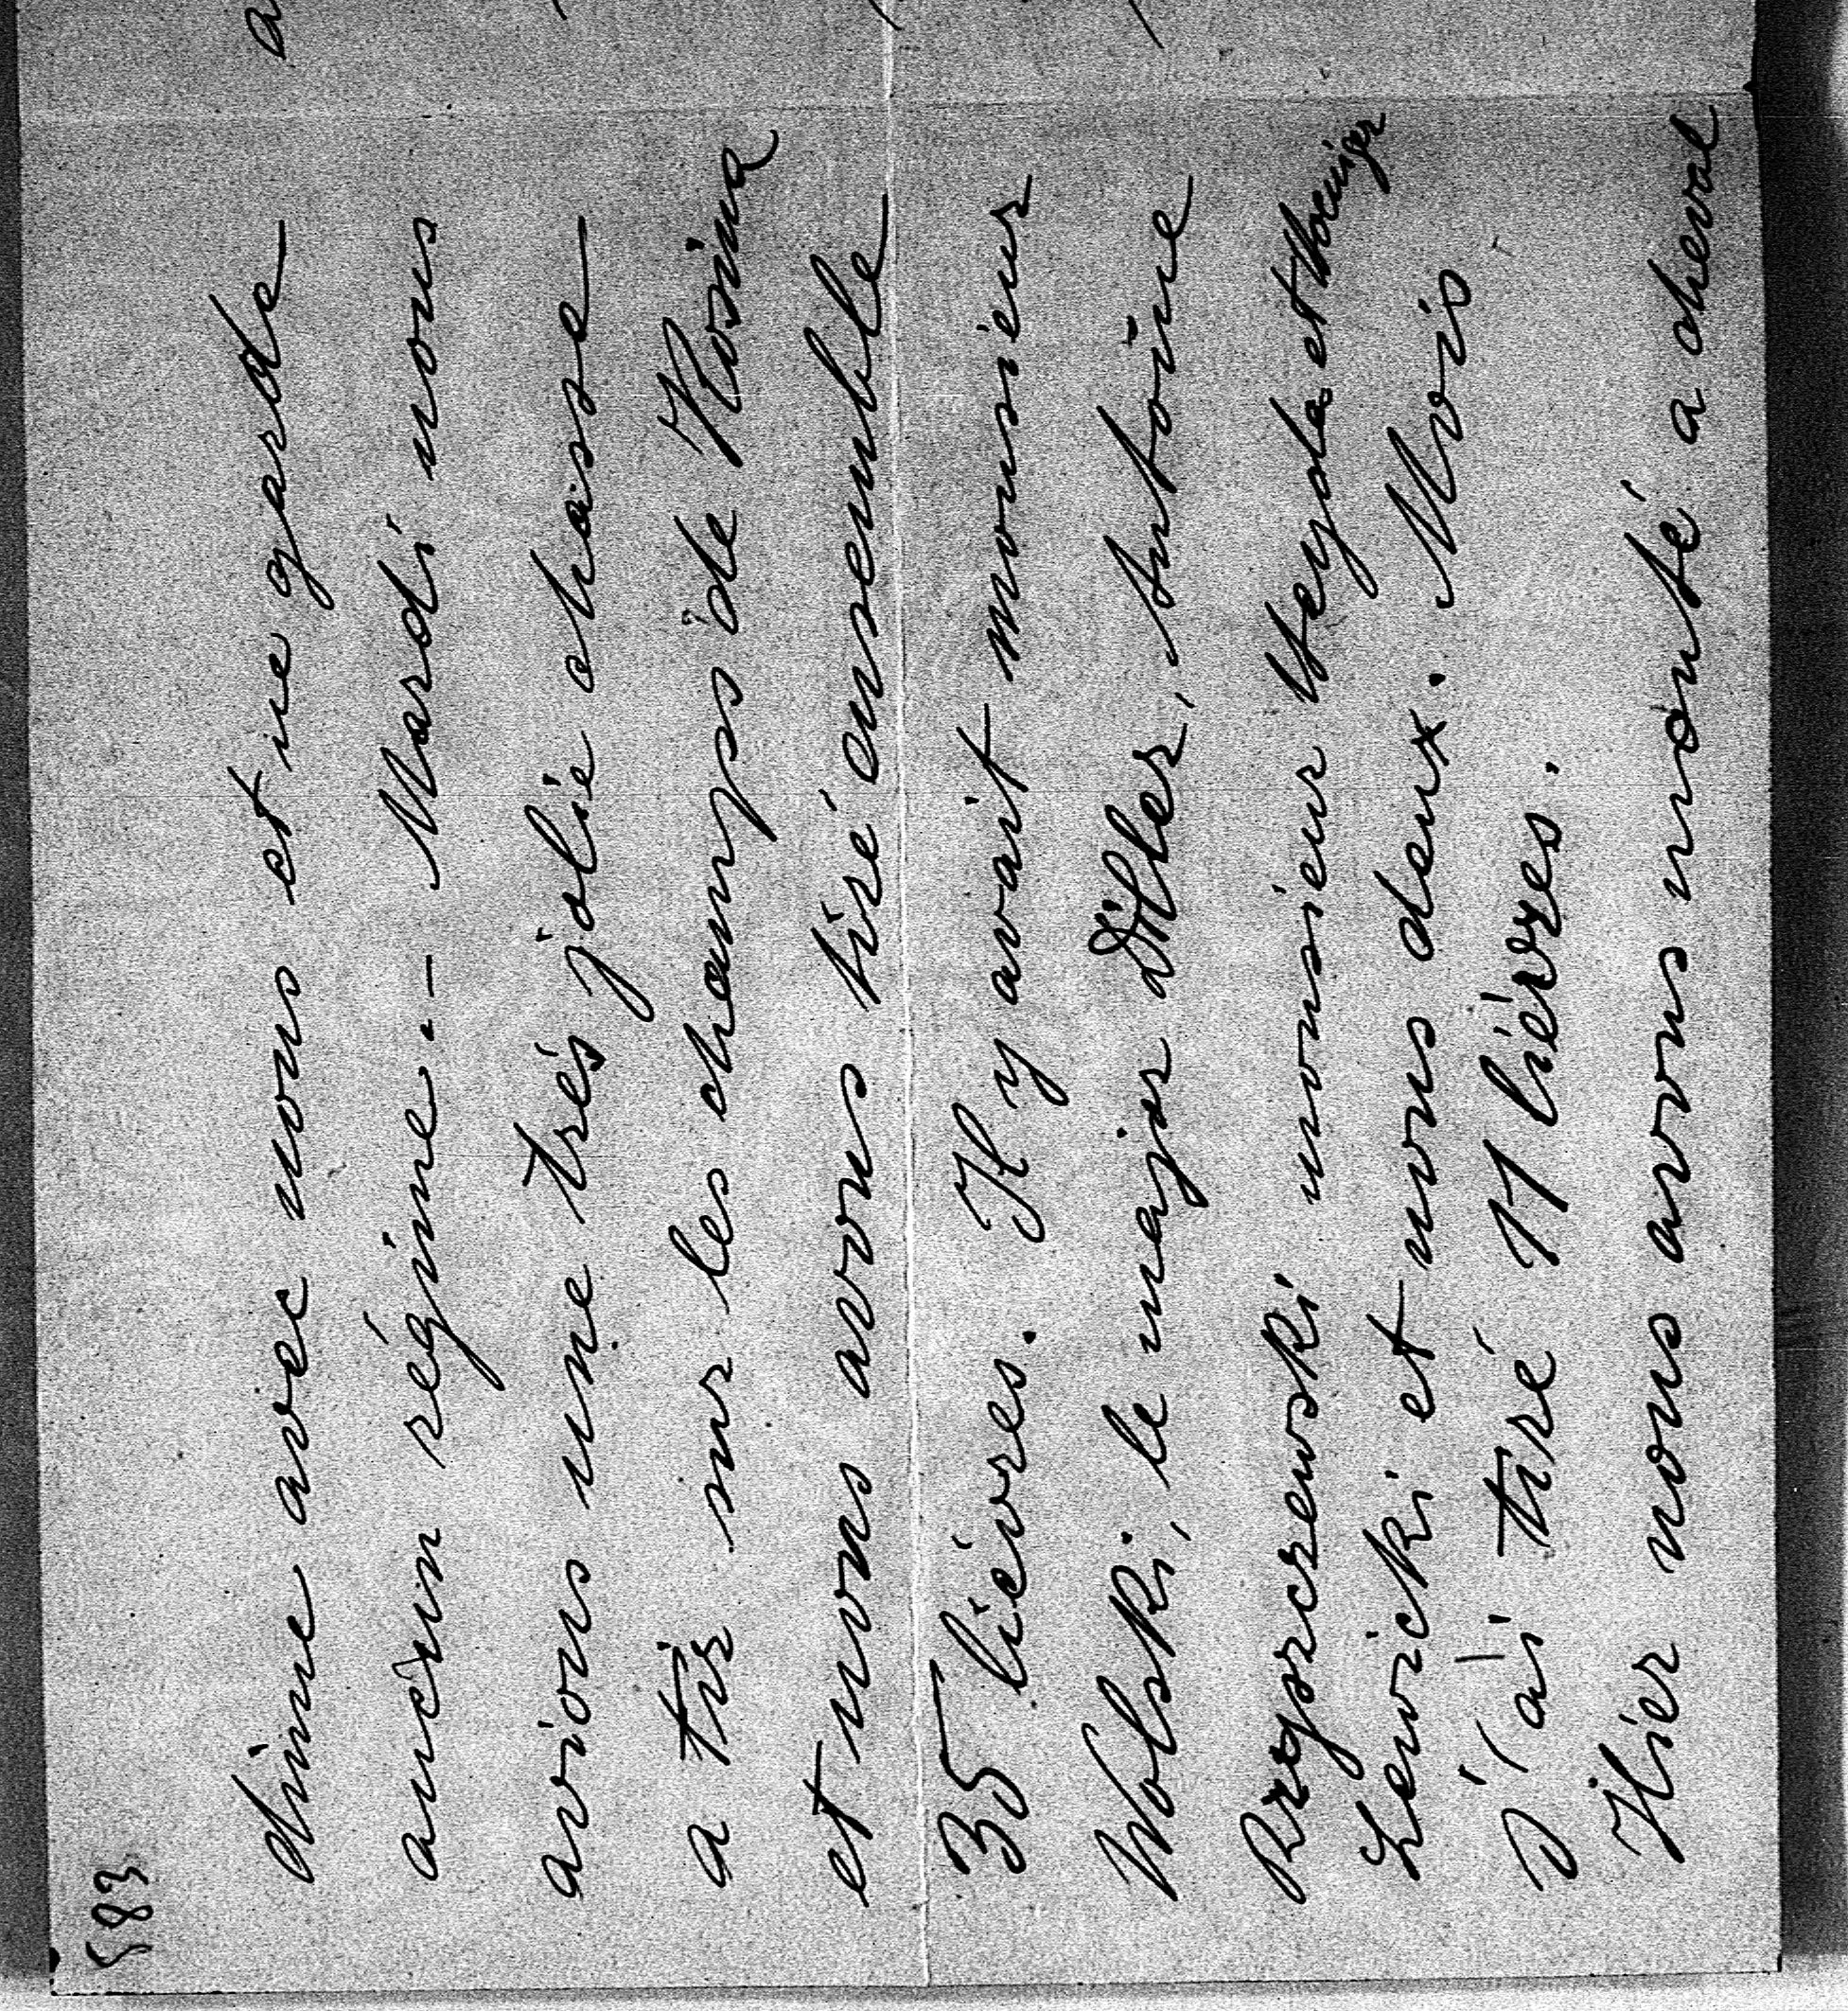 583
dine avec nous et ne garde
aucun régime. – Mardi nous
avions une très jolie chasse
a tir sur les champs de Kosina
et nous avons tiré ensemble
35 liévres. Il y avait monsieur
Wolski, le major Diller, Antoine
monsieur Heyda et
Lewicki et nous deux. Mois
J'ai tiré 11 liévres.
Hier nous avons monté a cheval